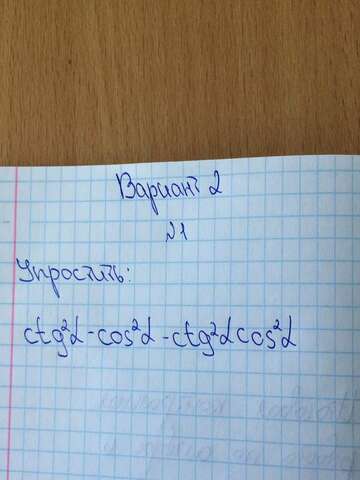 Вариант 2
№1
Упростить:
ctg²α - cos²α - ctg²α cos²α